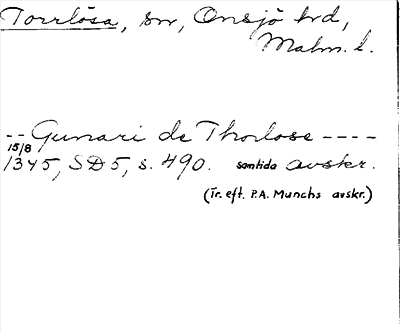 Torrlösa, sn, Onsjö hrd,
Malm. l.
-- Gunnari de Thorlose ----
15/8
1345, SD 5, s. 490. samtida avskr.
(Tr. eft. P.A. Munchs avskr.)